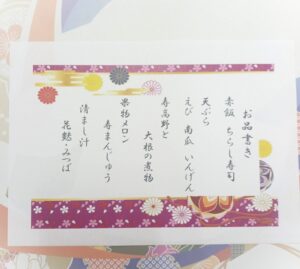 お品書き
赤飯 ちらし寿司
天ぷら
えび 南瓜 いんげん
寿高野と
大根の煮物
果物メロン
寿まんじゅう
清まし汁
花麩・みつば